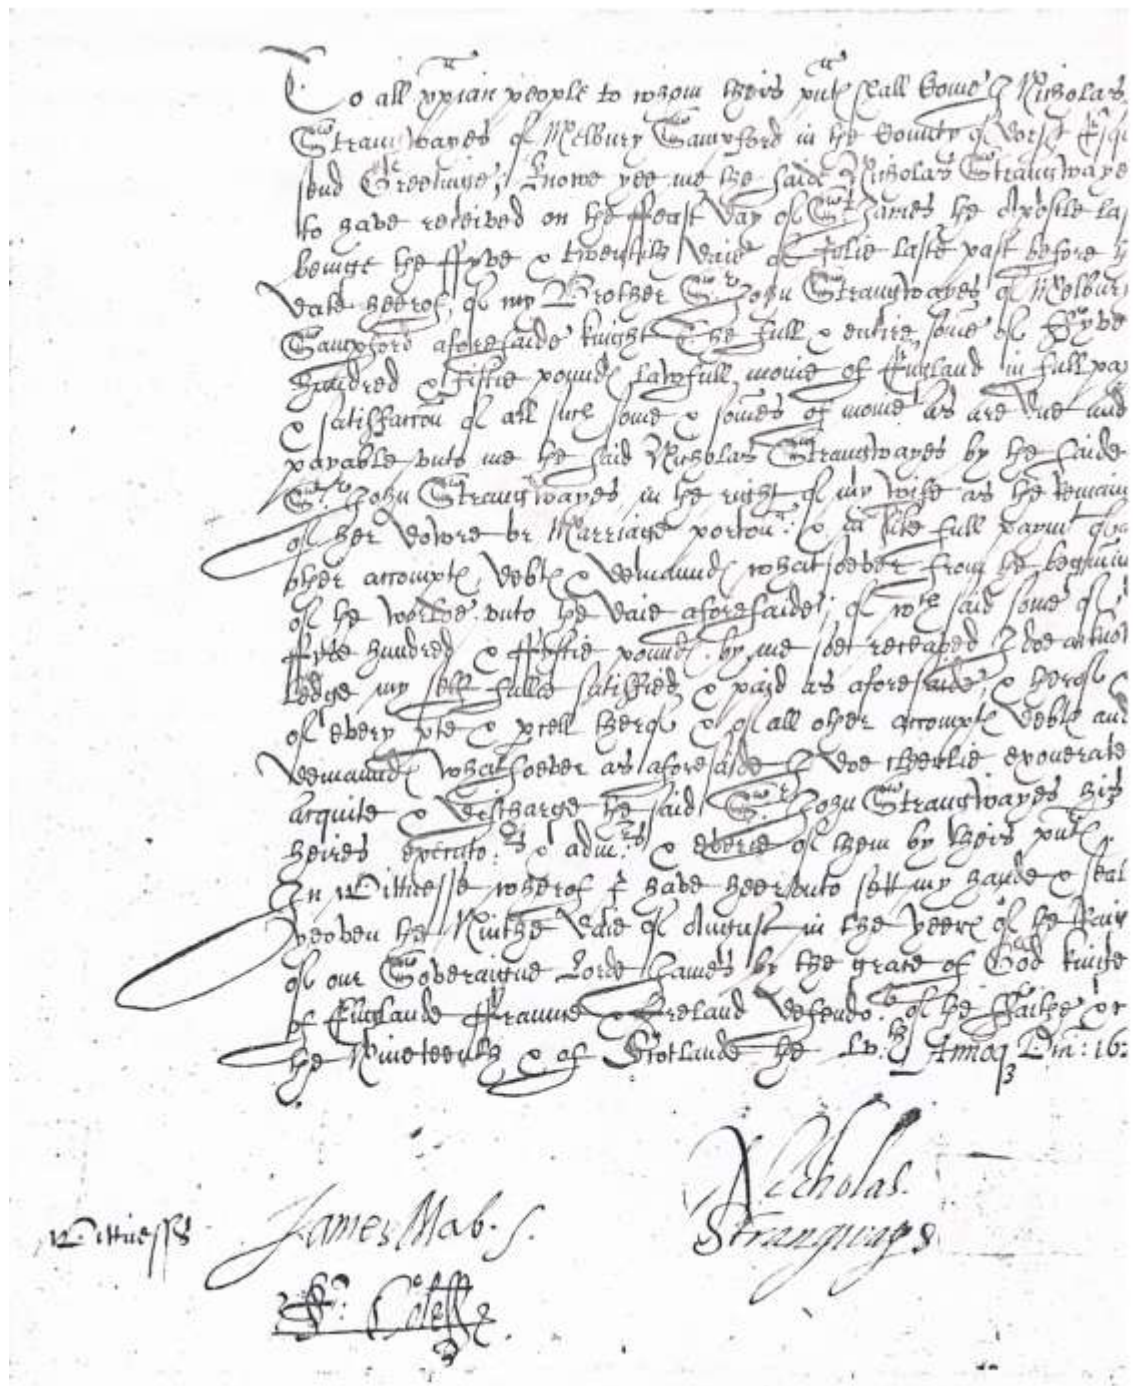 To all xpian people to whom theis pnte shall Come I Nicholas
Strangwayes of Melbury Sampford in the County of Dorst Esqu
send Greetinge, Knowe yee me the saide Nicholas Strangwaye
to have received on the ffeast Day of St James the Apostle las
beinge the ffyve & twentith Daie of Julie laste past before
Date heerof, of my Brother Sr John Strangwayes of Melbury
Sampford aforesaide knight The full & entire some of ffyve
hundred & fiftie pounds lawfull monie of England in full pay
& satisfaccon of all such some & somes of monie as are due and
payable unto me the said Nicholas Strangwayes by the saide
Sr John Strangwayes in the right of my wife as the Remain
of her Dowre or Marriage porton & in like full paimt of
other accompts Debts & demaunds whatsoever from the beginnin
of the worlde unto the daie aforesaide, of wch said some of
ffyve hundred & ffyftie pounds by me soe receaved I doe acknow
ledge my self fullie satisfied & paid as aforesaide, & therof &
of every pte & pcell therof & of all other accompts debts and
demaunds whatsoever as aforesaide I doe cleerlie exonerate
acquite & discharge the said Sr John Strangwayes his
heires executors & admrs & everie of them by theis pnts.
In Wittnesse wherof I have heerunto sett my hande & seal
yeoven the Ninthe Daie of August in the yeers of the Raig
of our Soveraigne Lorde James by the grace of God kinge
of Englande ffraunce & Ireland Defendor of the ffaithe &c
the Nineteenth & of Scotlande the Lv.th Annoq Dni: 16
Nicholas
Strangways
Wittnesses James Mab.s.